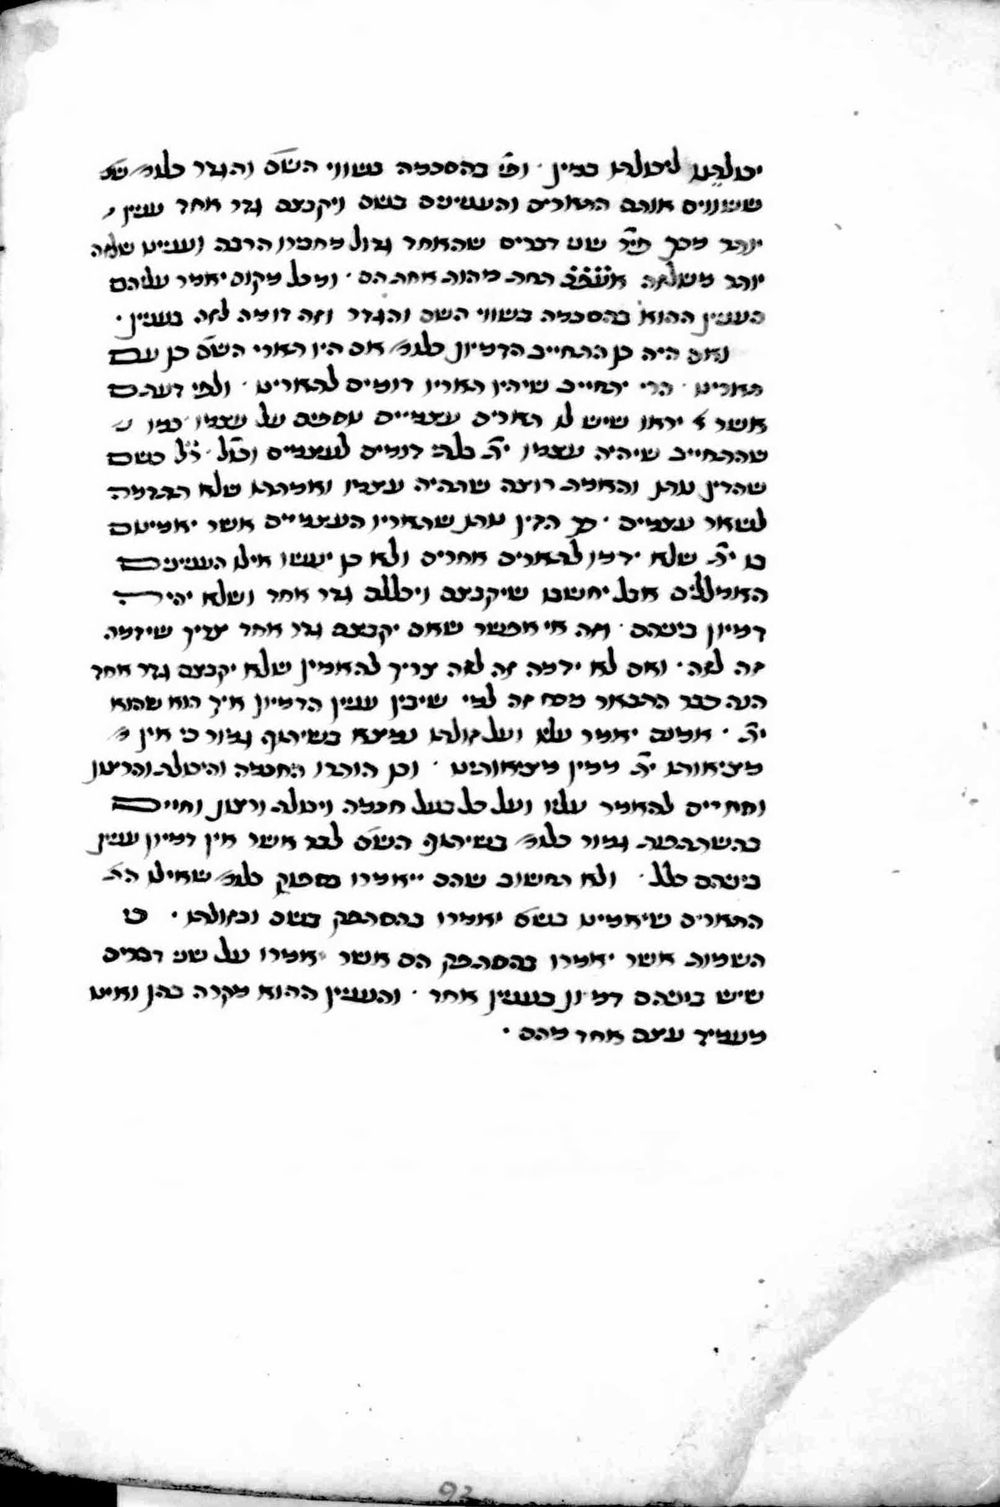 יכולתנו ליכולתו במין · ופי׳ בהסכמה בשווי השם והגדר כלומ׳ שם
ששווים אותם התארים והעניינים בשם ויקבצם גדר אחד עניין
יותר מכך שני דברים שהאחד גדול מחבירו הרבה ועניינו שלזה
יותר משלזה תחת מהות אחת הם · ומכל מקום יאמר עליהם
העניין ההוא בהסכמה בשווי השם והגדר וזה דומה לזה בעניין ·
ואם היה כן התחייב הדמיון כלומ׳ אם היו תארי השם כן עם
תארינו · הרי יתחייב שיהיו תאריו דומים לתארינו · ולפי דעתם
אשר יראו שיש לו תארים עצמיים נוספים על עצמו כמו
שהתחייב שיהיה עצמו ית׳ בלתי דומים לעצמים וכול׳ · ר״ל כשם
שהדין נותן והאמת רוצה שתהיה עצמו ואמתתו שלא תתדמה
לשאר עצמים · כך הדין נותן שתאריו העצמיים אשר יאמינום
בו ית׳ שלא ידמו לתארים אחרים ולא כן יעשו אילו העניינים
האמללים אבל יחשבו שיקבצם ויכללם גדר אחד ושלא יהיה
דמיון ביניהם · וזה אי אפשר שאם יקבצם גדר אחד צריך שידמה
זה לזה · ואם לא ידמה זה לזה צריך להאמין שלא יקבצם גדר אחד
הנה כבר התבאר מכח זה למי שיבין עניין הדמיון איך הוא שהוא
ית׳ · אמנם יאמר עליו ועל זולתו נמצא בשיתוף גמור כי אין
מציאותו ית׳ ממין מציאותינו · וכן הותרו החכמה והיכולת והרצון
והחיים להאמר עליו ועל כל בעל חכמה ויכולת ורצון וחיים
בהשתתפות גמור כלומ׳ בשיתוף השם לבד אשר אין דמיון עניין
ביניהם כלל · ולא תחשוב שהם ייאמרו בספוק כלומ׳ שאילו הת׳
התארים שיאמינו בשם יאמרו בהסתפק בשם ובזולתו · כי
השמות אשר יאמרו בהסתפק הם אשר יאמרו על שני דברים
שיש ביניהם דמיון בעניין אחד · והעניין ההוא מקרה בהן ואינו
מעמיד עצם אחד מהם ·